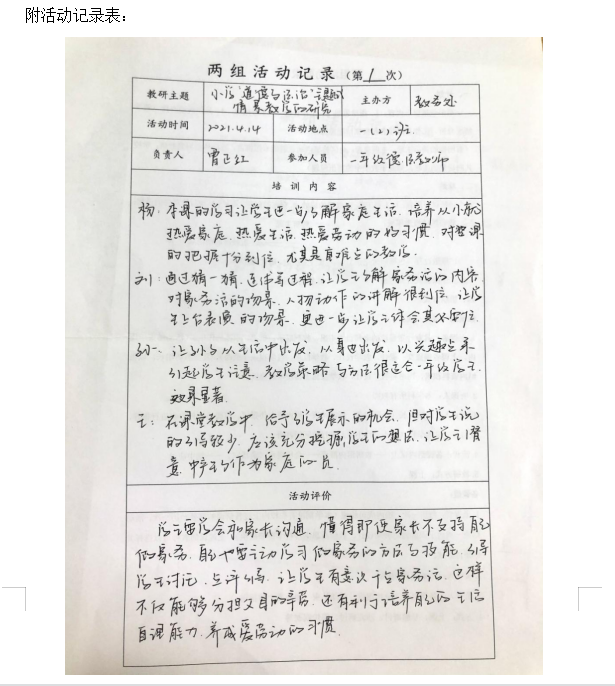 附活动记录表：
两组活动记录（第1次）
教研主题 小学道德与法治主题式情景教学的研究 主办方 教务处
活动时间 2021.4.14 活动地点 一（2）班
负责人 曹正红 参加人员 一年级德法教师
培训内容
杨：本课的学习让学生进一步了解家庭生活，培养从小就
热爱家庭，热爱生活，热爱劳动的好习惯，对整课
的把握十分到位，尤其是重难点的教学。
刘：通过猜一猜，连一连过程，让学生了解家务活的内容
对家务活的场景、人物动作的讲解很到位，让学
生上台表演的场景，更进一步让学生体会其必要性。
孙：让孩子从生活中出发，从身边出发，以兴趣点来
引起学生注意，教学策略与方法很适合一年级学生
效果显著。
王：在课堂教学中，给予了学生展示的机会，但对学生说
的引导较少，应该充分挖掘学生的想法，让学生
作为家庭的一员。
活动评价
学生要学会和家长沟通，懂得即使家长不支持自己
做家务，自己也要主动学习做家务的方法与技能，引导
学生讨论，点评引导，让学生有意识干点家务活，这样
不仅能够分担父母的辛劳，还有利于培养自己的生活
自理能力，养成爱劳动的习惯。